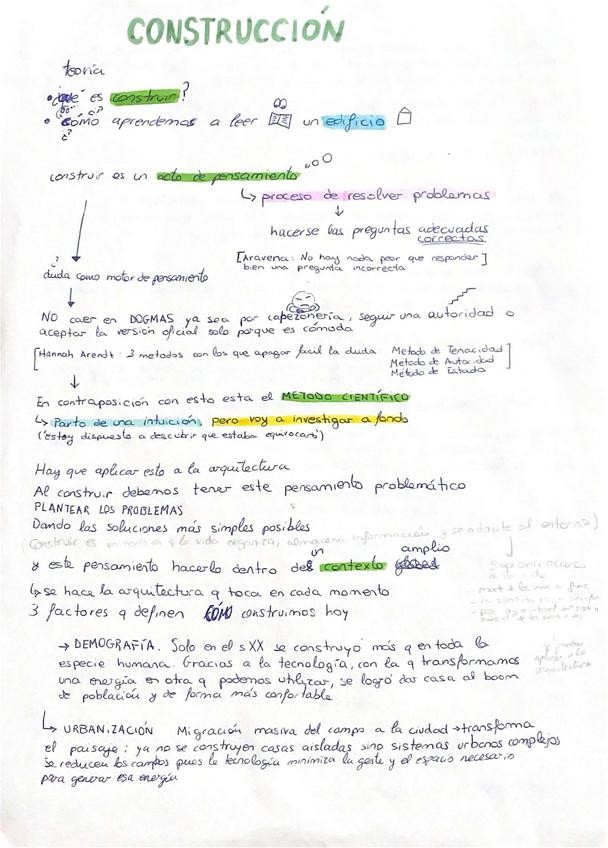 CONSTRUCCIÓN
teoría
• ¿qué es construir?
• cómo aprendemos a leer un edificio
construir es un acto de pensamiento
↳ proceso de resolver problemas
↓
hacerse las preguntas adecuadas
correctas
[Aravena: No hay nada peor que responder]
bien una pregunta incorrecta
duda como motor de pensamiento
NO caer en DOGMAS ya sea por cabezonería, seguir una autoridad o
aceptar la versión oficial solo porque es cómoda
[Hannah Arendt: 3 metodos con los que apagar facil la duda: Metodo de Tenacidad]
Metodo de Autoridad
Metodo de Estado
En contraposición con esto esta el METODO CIENTÍFICO
↳ Parto de una intuición, pero voy a investigar a fondo
(estoy dispuesto a descubrir que estaba equivocarb)
Hay que aplicar esto a la arquitectura
Al construir debemos tener este pensamiento problemático
PLANTEAR LOS PROBLEMAS
Dando las soluciones más simples posibles
(Construir es un q la vida organiza, almacena información y se adapta al entorno)
y este pensamiento hacerlo dentro de un contexto amplio
↳ se hace la arquitectura q toca en cada momento
3 factores q definen CÓMO construimos hoy
→ DEMOGRAFÍA. Solo en el s XX se construyó más q en toda la
especie humana. Gracias a la tecnología, con la q transformamos
una energía en otra q podemos utilizar, se logró dar casa al boom
de población y de forma más confortable
↳ URBANIZACIÓN Migración masiva del campo a la ciudad → transforma
el paisaje: ya no se construyen casas aisladas sino sistemas urbanos complejos
se reducen los campos pues la tecnología minimiza la gente y el espacio necesario
para generar esa energía